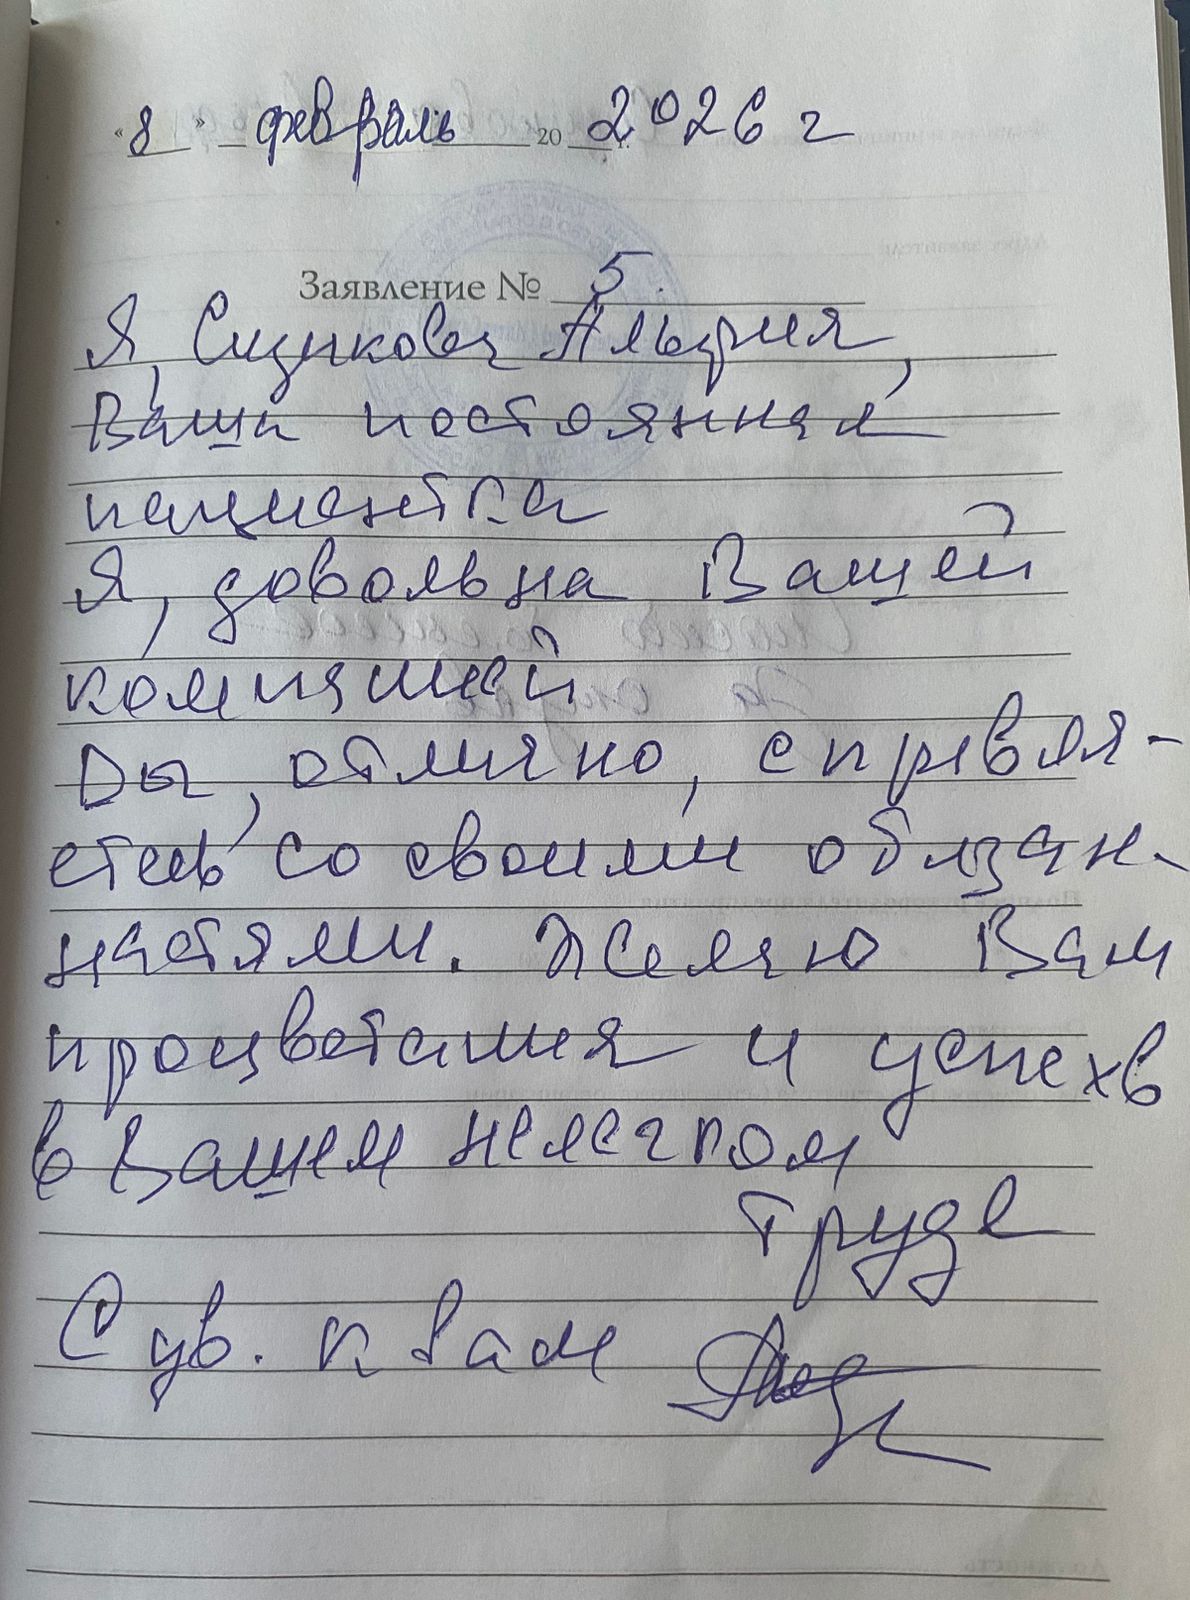 « 8 » февраль 20 2026 г
Заявление № 5.
Я, Альфия,
Ваша постоянная
пациентка
Я, довольна Вашей
компанией
Вы, отлично, справля-
етесь со своими обязан-
настями. Желаю Вам
процветания и успехв
в Вашем нелегком
труде
С ув. к вам